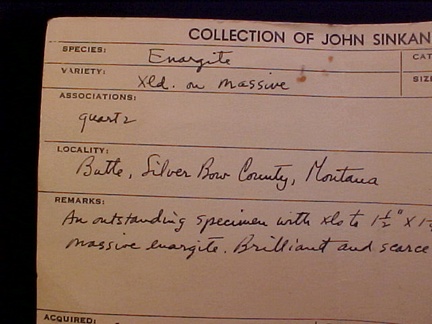 COLLECTION OF JOHN SINKAN
SPECIES: Enargite
CAT
VARIETY: xld. on massive
SIZE
ASSOCIATIONS:
quartz
LOCALITY:
Butte, Silver Bow County, Montana
REMARKS:
An outstanding specimen with xls to 1½" x 1
massive enargite. Brilliant and scarce
ACQUIRED: